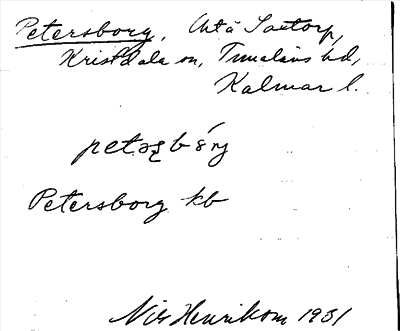 Petersborg, Avtä Saxtorp,
Kristdala sn, Tunaläns hd,
Kalmar l.
petəȿbórj
Petersborg kb
Nils Henrikson 1931